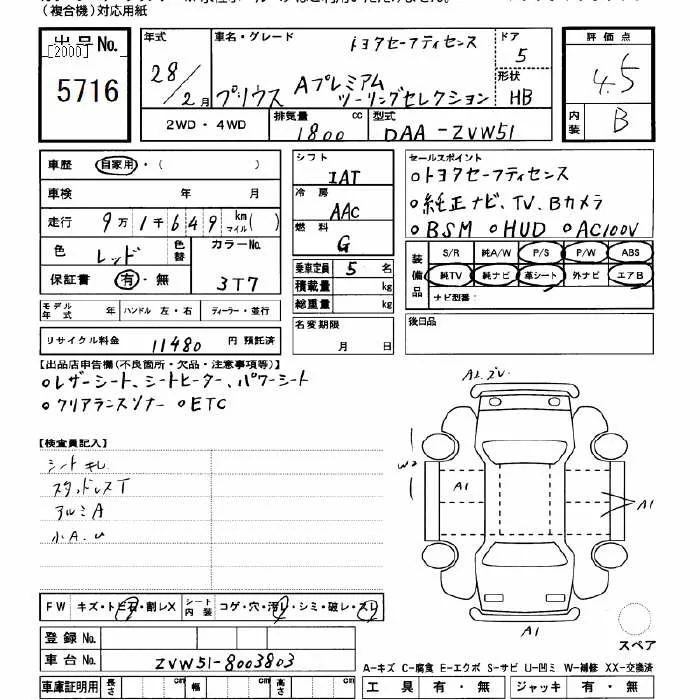 （複合機）対応用紙
出品No.
[2000]
5716
年式
28/2月
車名・グレード
トヨタセーフティセンス
プリウス Aプレミアム
ツーリングセレクション
ドア
5
形状
HB
評価点
4.5
内装
B
2WD・4WD
排気量
1800 cc
型式
DAA-ZVW51
車歴 自家用・( )
車検 年 月
走行 9万1千649 km マイル( )
色 レッド
色替
カラーNo.
3T7
保証書 有・無
シフト
IAT
冷房
AAC
燃料
G
乗車定員 5 名
積載量 kg
総重量 kg
セールスポイント
○トヨタセーフティセンス
○純正ナビ、TV、Bカメラ
○BSM ○HUD ○AC100V
装備品
S/R 純A/W P/S P/W ABS
純TV 純ナビ 革シート 外ナビ エアB
ナビ型番:
モデル年式 年 ハンドル 左・右 ディーラー・並行
名変期限
月 日
後日品
リサイクル料金 11480 円 預託済
【出品店申告欄(不良箇所・欠品・注意事項等)】
○レザーシート、シートヒーター、パワーシート
○クリアランスソナー ○ETC
【検査員記入】
シートキレ
スタッドレスT
アルミA
小A.U
W2
A1
A1
A1
スペア
FW キズ・トビ石・割レX
シート内装 コゲ・穴・汚レ・シミ・破レ・スレ
登録No.
車台No. ZVW51-8003803
車庫証明用 長さ cm 幅 cm 高さ cm
A-キズ C-腐食 E-エクボ S-サビ U-凹ミ W-補修 XX-交換済
工具 有・無 ジャッキ 有・無